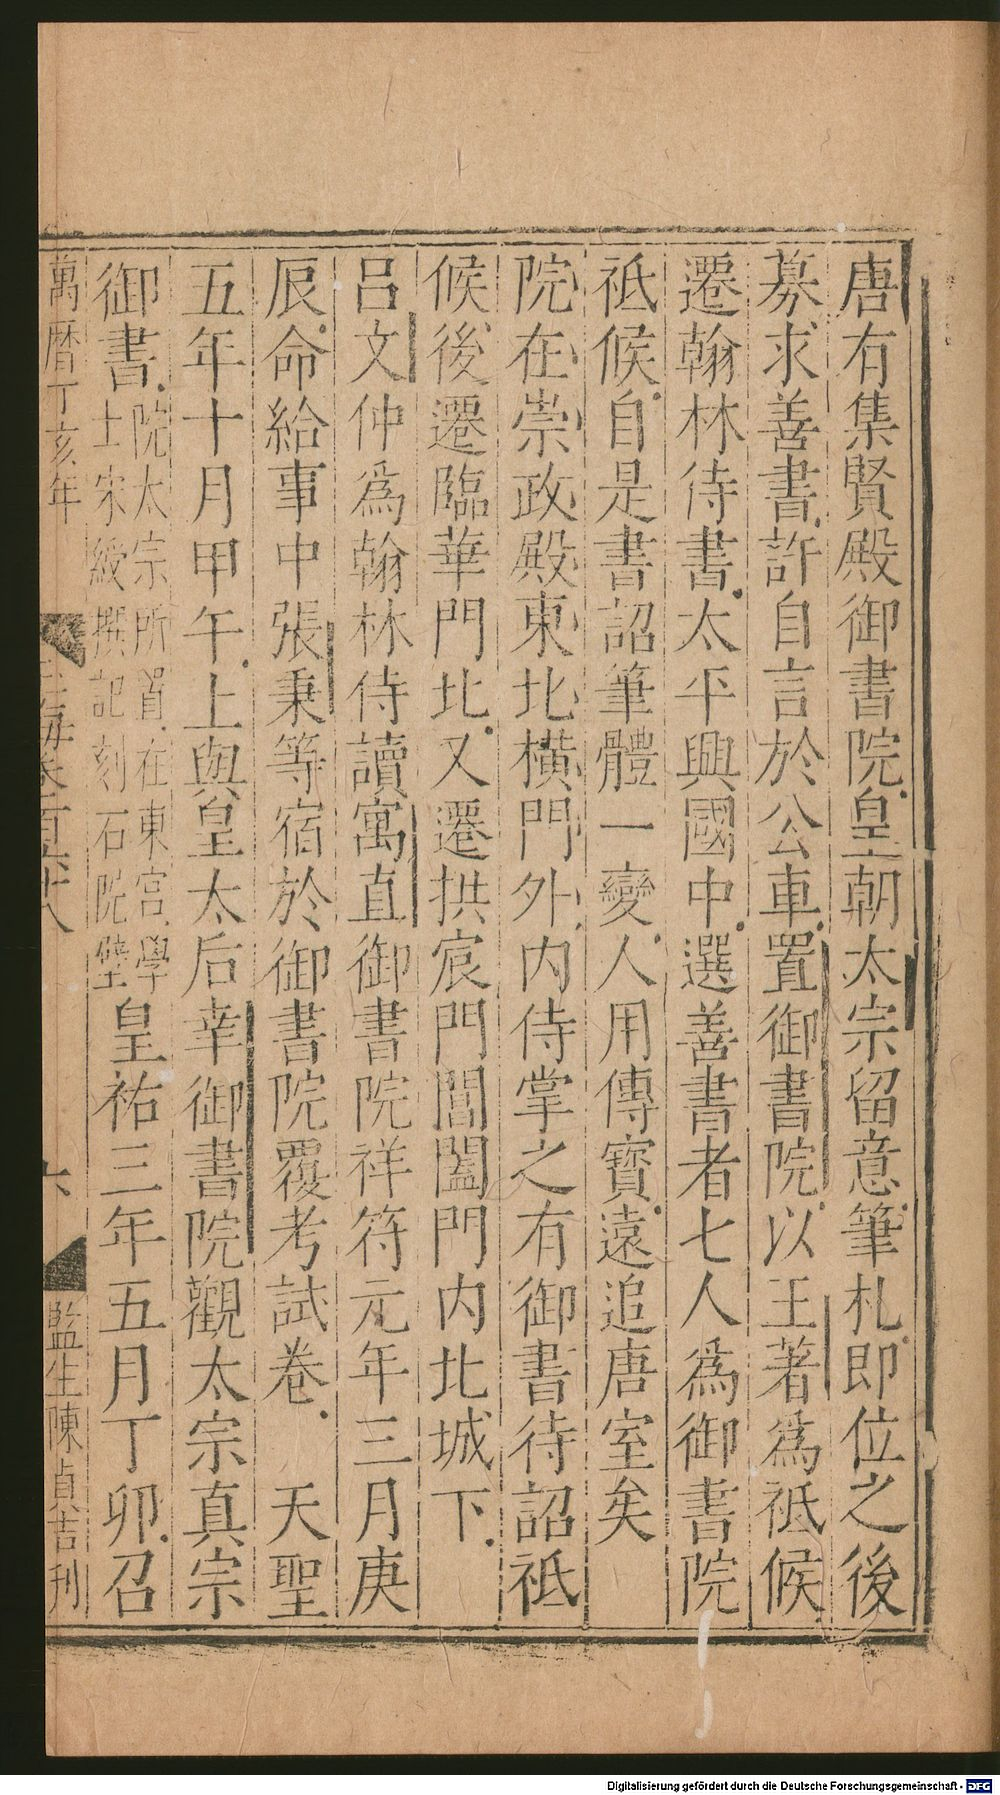 唐有集賢殿御書院皇朝太宗留意筆札即位之後
募求善書許自言於公車置御書院以王著爲祗候
遷翰林侍書太平興國中選善書者七人爲御書院
祗候自是書詔筆體一變人用傳寶遠追唐室矣
院在崇政殿東北橫門外内侍掌之有御書待詔祗
候後遷臨華門北又遷拱宸門閶闔門内北城下
吕文仲爲翰林侍讀寓直御書院祥符元年三月庚
辰命給事中張秉等宿於御書院覆考試卷 天聖
五年十月甲午上與皇太后幸御書院觀太宗真宗
御書院太宗所置在東宫學士宋綬撰記刻石院壁皇祐三年五月丁卯召
萬曆丁亥年
海卷一百六十八
六
監生陳貞吉刊
Digitalisierung gefördert durch die Deutsche Forschungsgemeinschaft - DFG